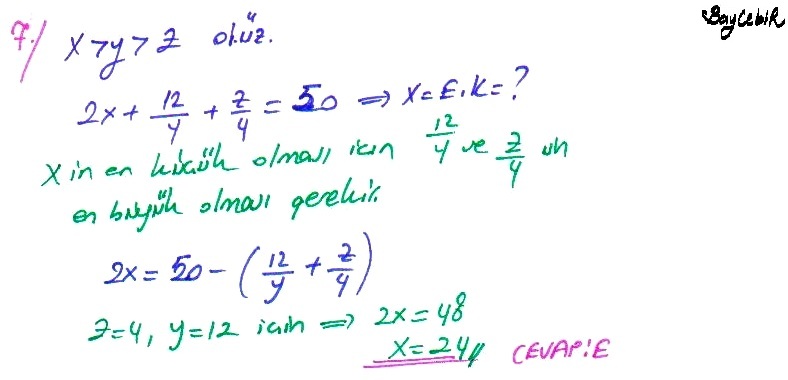 BayCebiR
7./ x>y>z ol.üz.
2x + 12/y + z/4 = 50 ⇒ x = E.K = ?
x in en küçük olması için 12/y ve z/4 ün
en büyük olması gerekir.
2x = 50 - (12/y + z/4)
z=4, y=12 için ⇒ 2x = 48
x = 24 // CEVAP:E